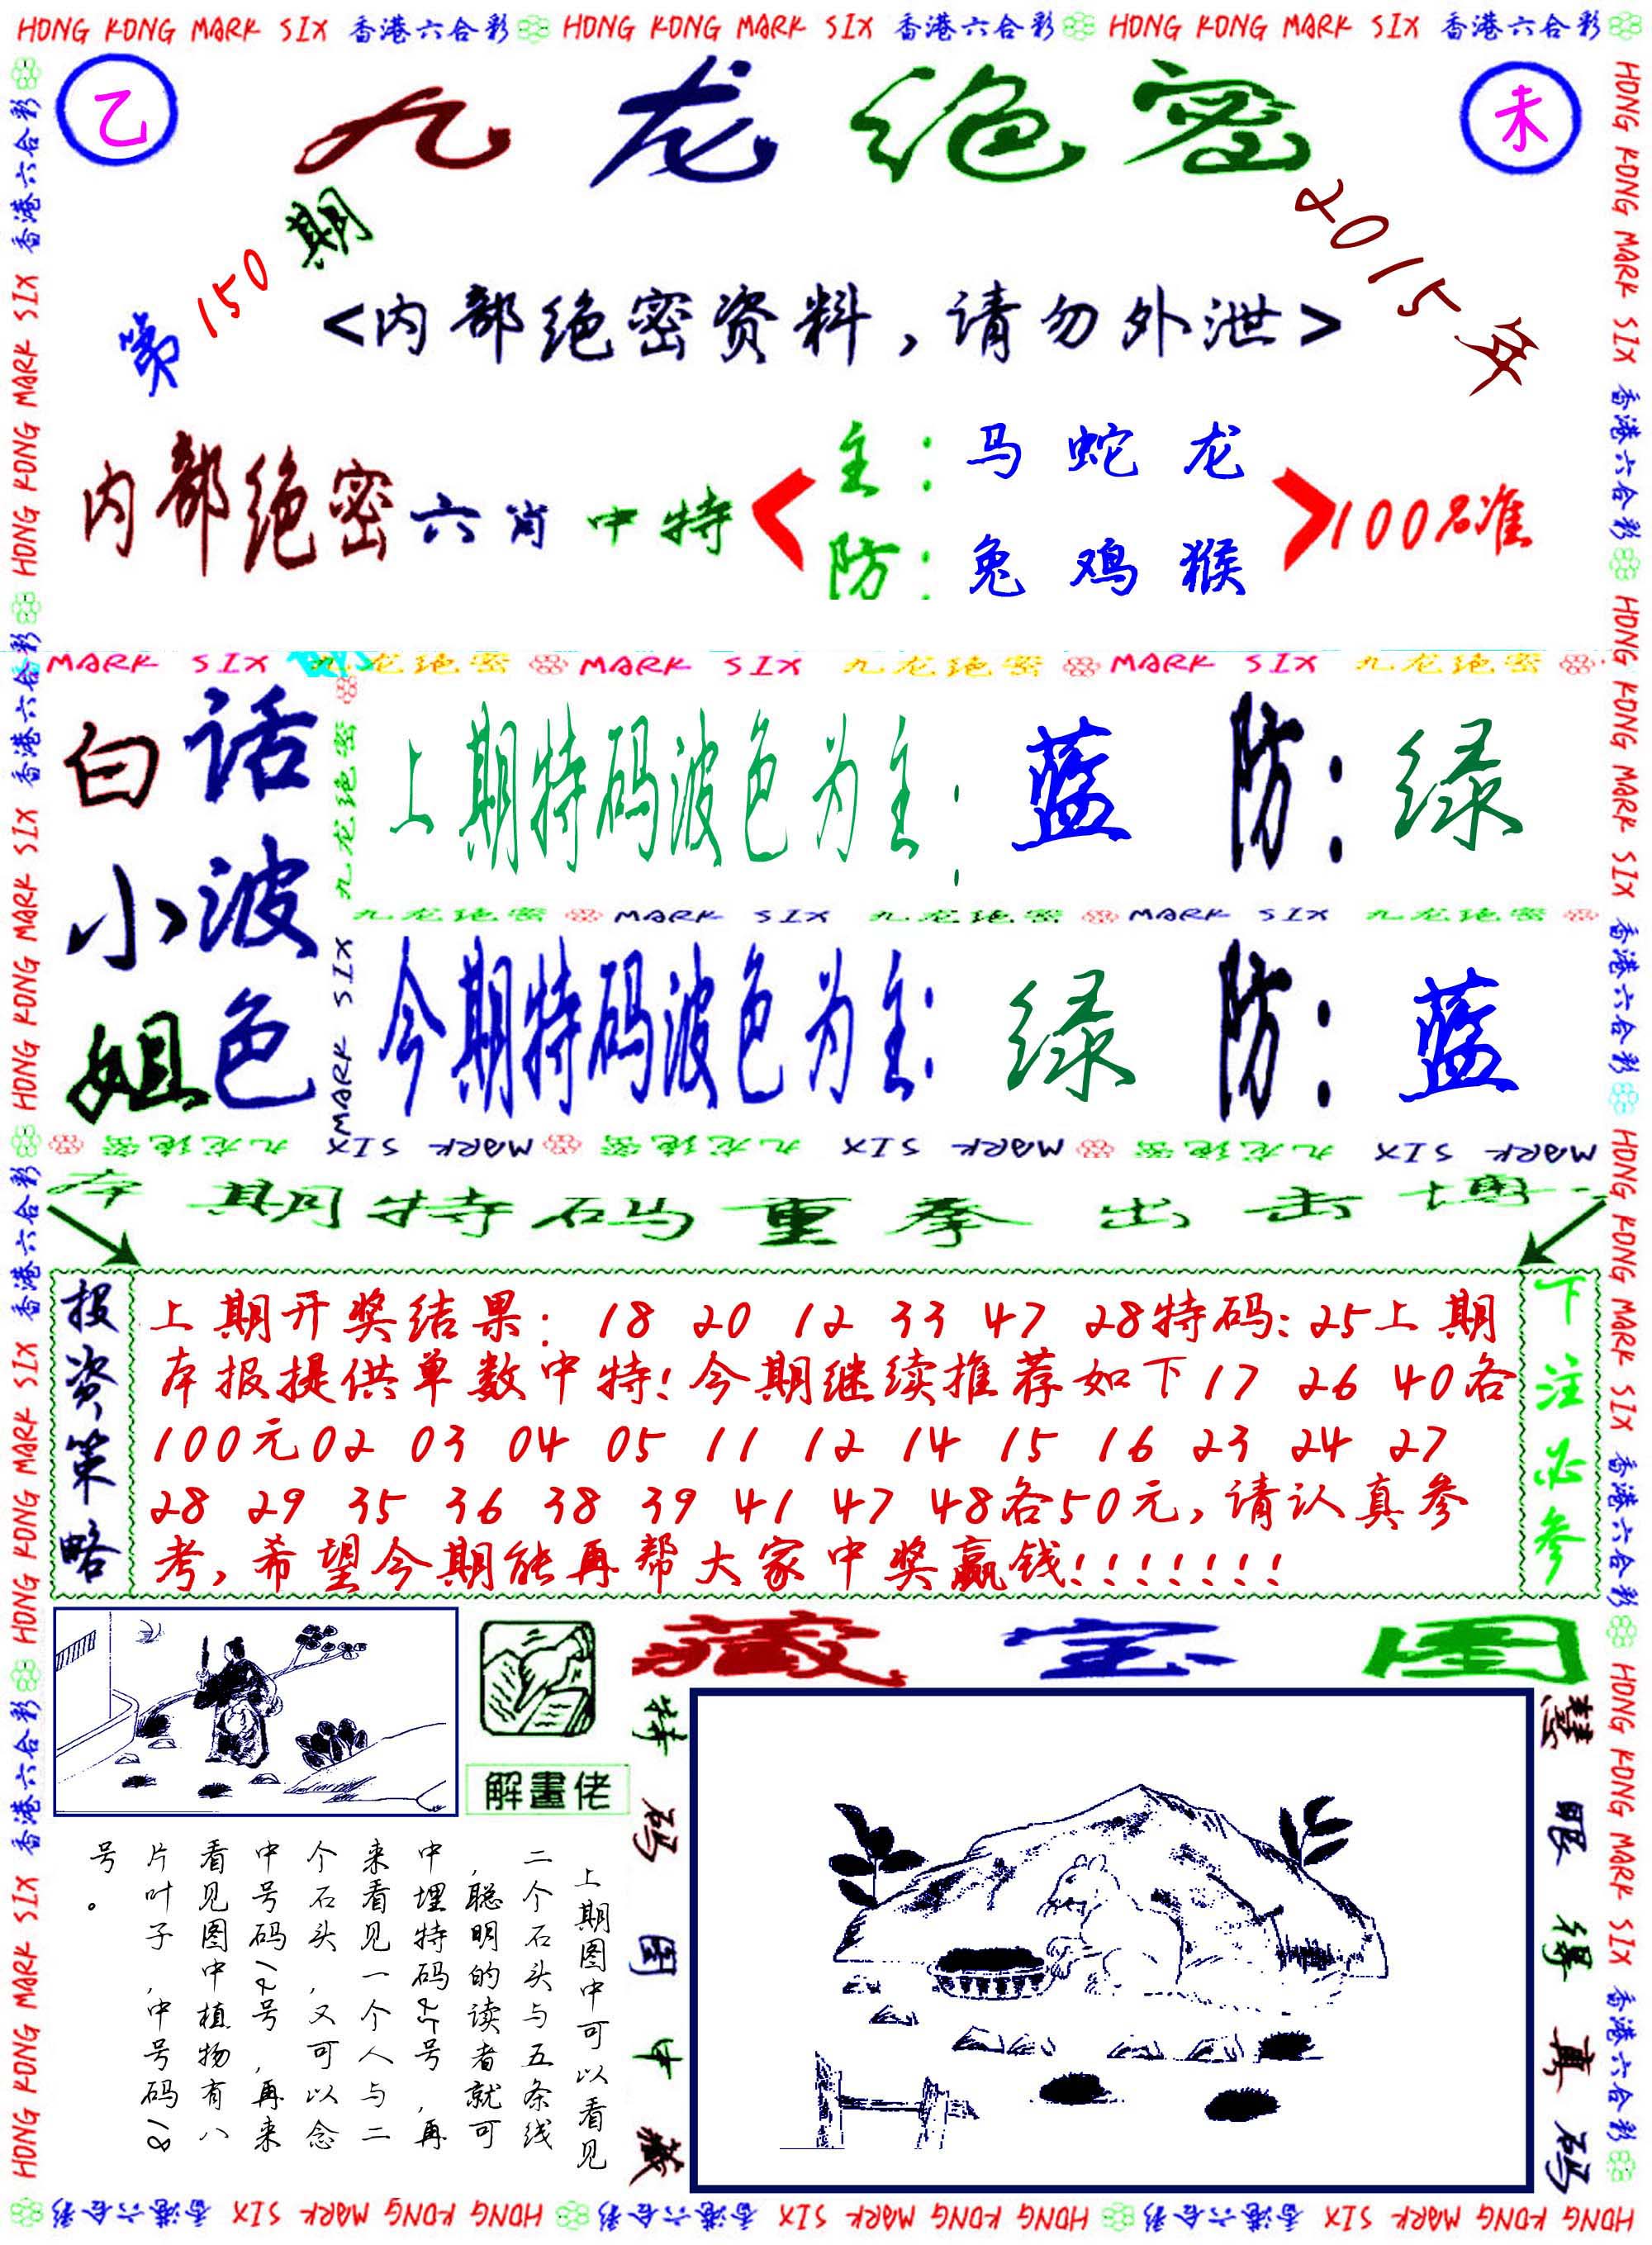 HONG KONG MARK SIX 香港六合彩 HONG KONG MARK SIX 香港六合彩 HONG KONG MARK SIX 香港六合彩
乙
九龙绝密
未
第150期
2015年
<内部绝密资料,请勿外泄>
内部绝密六肖中特
主:马 蛇 龙
防:兔 鸡 猴
100%准
MARK SIX 九龙绝密 MARK SIX 九龙绝密 MARK SIX 九龙绝密
白话
小波
姐色
九龙绝密 MARK SIX
上期特码波色为主:蓝 防:绿
九龙绝密 MARK SIX 九龙绝密 MARK SIX 九龙绝密
今期特码波色为主:绿 防:蓝
九龙绝密 MARK SIX 九龙绝密 MARK SIX 九龙绝密 MARK SIX
本期特码重拳出击博
投资策略
上期开奖结果:18 20 12 33 47 28特码:25上期
本报提供单数中特!今期继续推荐如下17 26 40各
100元02 03 04 05 11 12 14 15 16 23 24 27
28 29 35 36 38 39 41 47 48各50元,请认真参
考,希望今期能再帮大家中奖赢钱!!!!!!!
下注必参
解畫佬
藏宝图
上期图中可以看见
二个石头与五条线
,聪明的读者就可
中埋特码25号,再
来看见一个人与二
个石头,又可以念
中号码12号,再来
看见图中植物有八
片叶子,中号码18
号。
特码图中藏
慧眼得真码
HONG KONG MARK SIX 香港六合彩 HONG KONG MARK SIX 香港六合彩 HONG KONG MARK SIX 香港六合彩
HONG KONG MARK SIX 香港六合彩 HONG KONG MARK SIX 香港六合彩 HONG KONG MARK SIX 香港六合彩 HONG KONG MARK SIX 香港六合彩
HONG KONG MARK SIX 香港六合彩 HONG KONG MARK SIX 香港六合彩 HONG KONG MARK SIX 香港六合彩 HONG KONG MARK SIX 香港六合彩